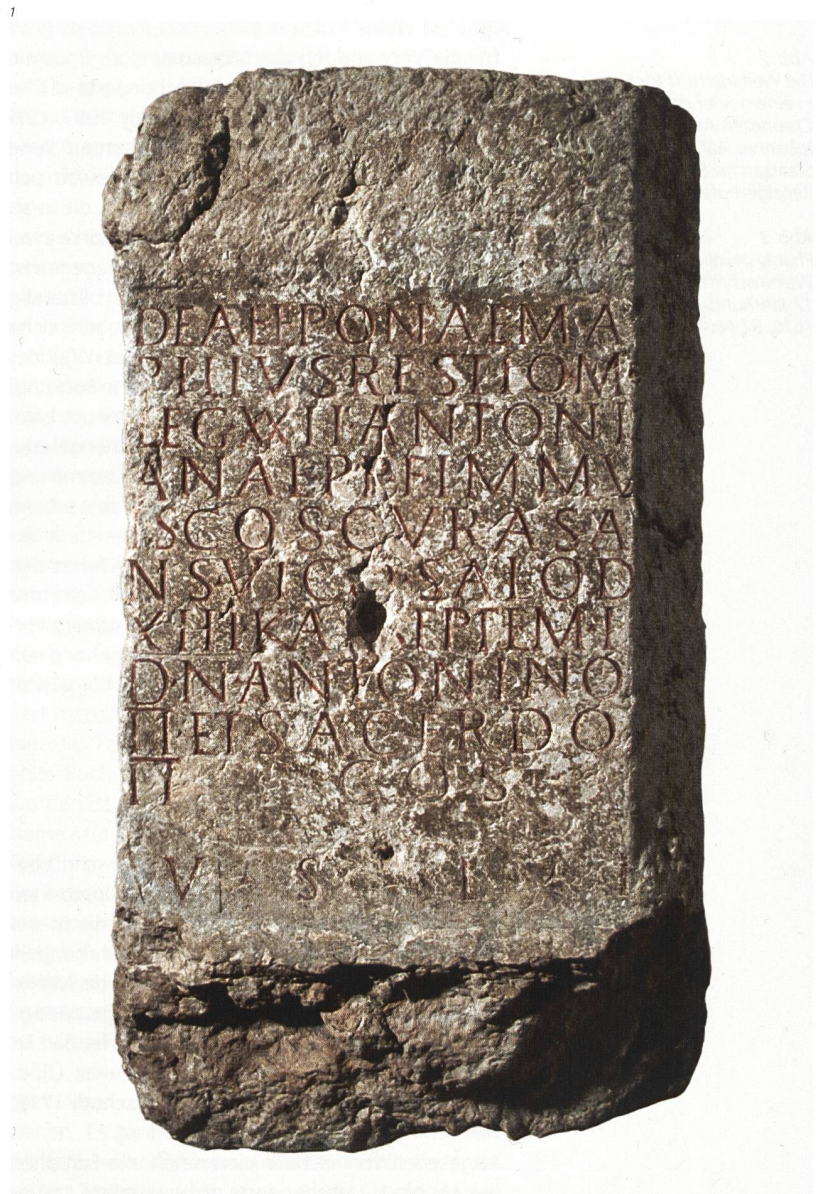 1
DEAE EPONAE MA
PILIVS RESTIO M
LEG XXII ANTONI
ANAE P P F IMMV
NIS COS CVRAS A
NS VICO SALOD
XIIII KA SEPTEM I
D N ANTONINO
II ET SACERDO
II COS
V S L